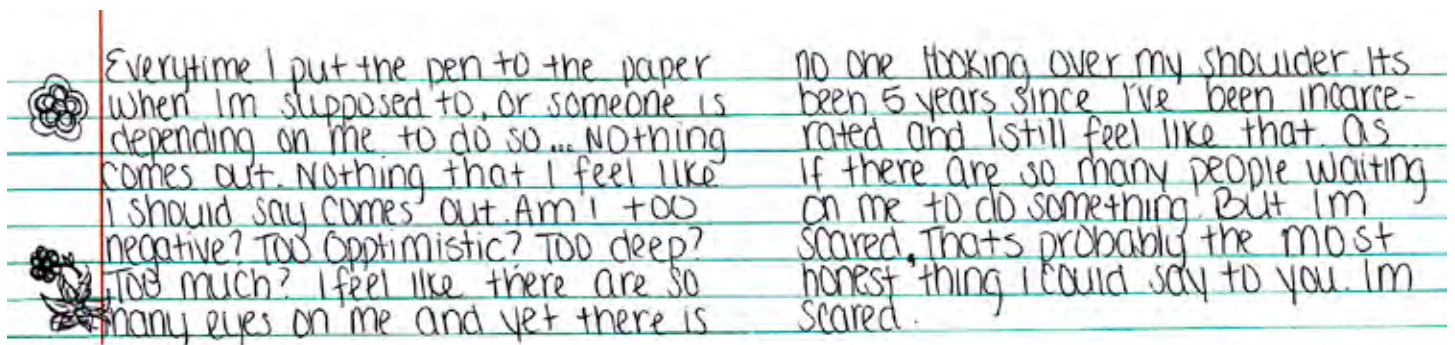 Everytime I put the pen to the paper
when Im supposed to, or someone is
depending on me to do so... Nothing
comes out. Nothing that I feel like
I should say comes out. Am I too
negative? Too Opptimistic? Too deep?
Too much? I feel like there are so
many eyes on me and yet there is
no one looking over my shoulder. Its
been 5 years since I've been incarce-
rated and I still feel like that. as
if there are so many people waiting
on me to do something. But Im
scared. Thats probably the most
honest thing i could say to you. Im
scared.